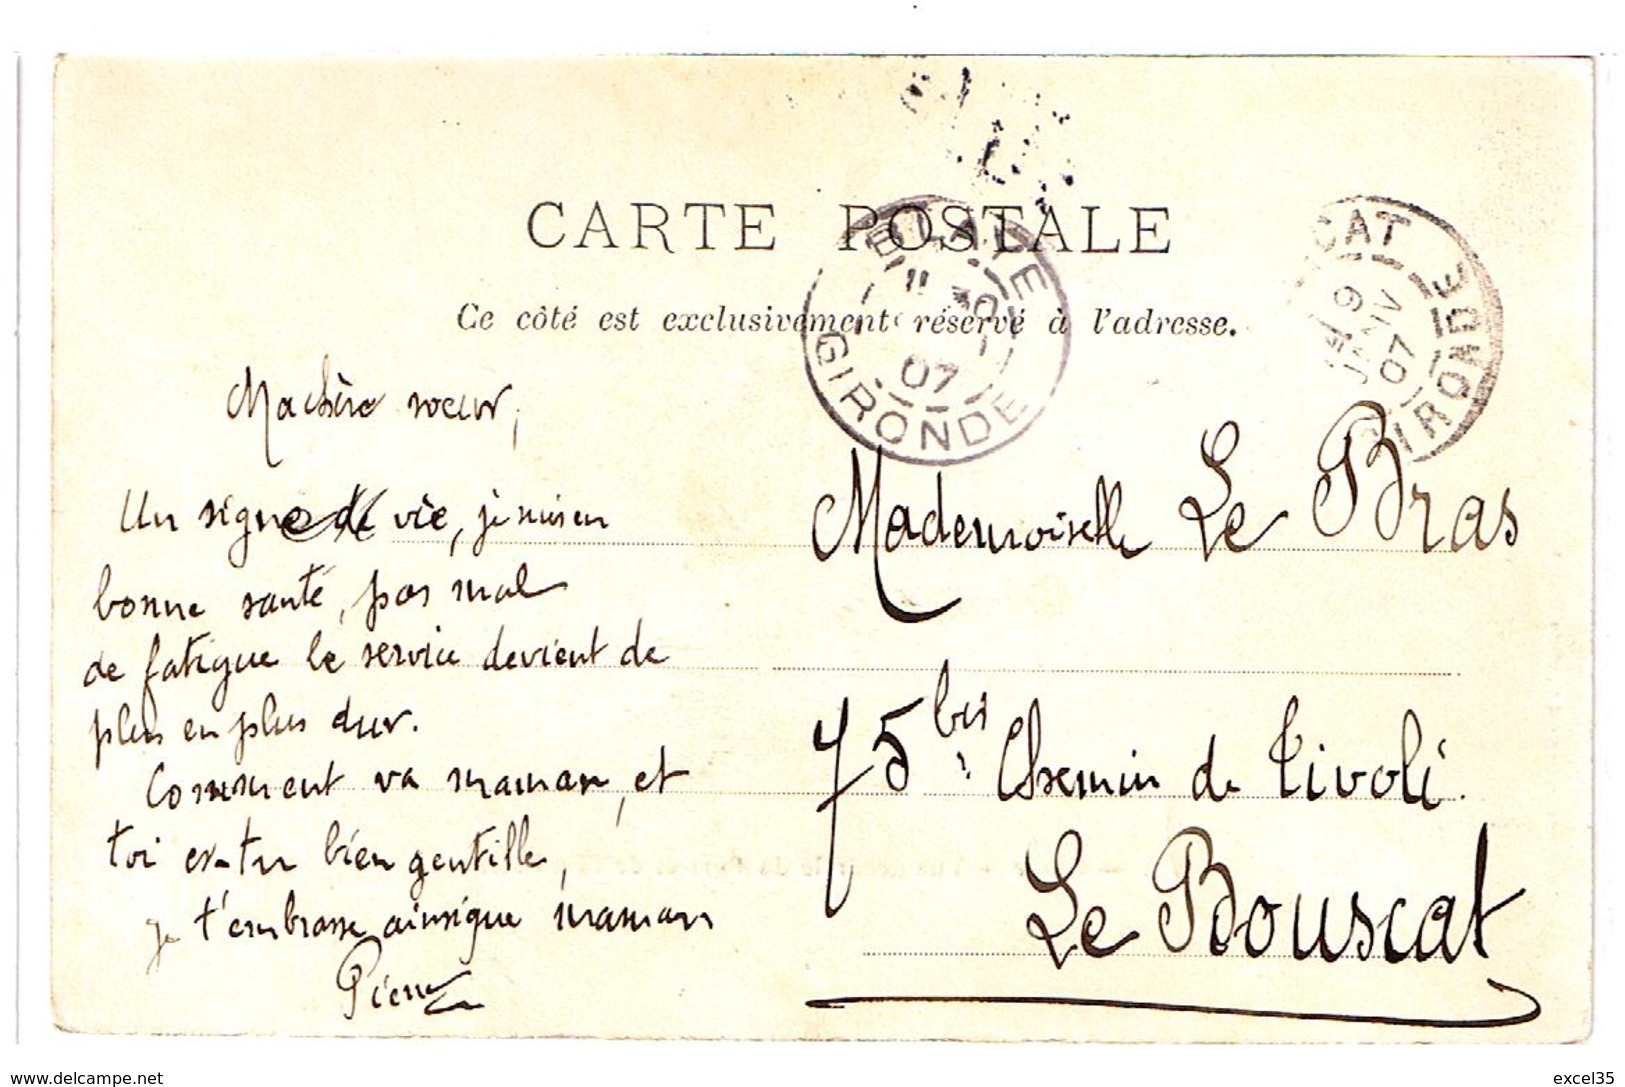 CARTE POSTALE
Ce côté est exclusivement réservé à l'adresse.
BLAYE
11 30
07
GIRONDE
CAT
9
JANV
07
GIRONDE
Ma chère soeur,
Un signe de vie, je suis en
bonne santé, pas mal
de fatigue le service devient de
plus en plus dur.
Comment va maman, et
toi es-tu bien gentille,
je t'embrasse ainsi que maman
Pierre
Mademoiselle Le Bras
75 bis Chemin de Tivoli
Le Bouscat
www.delcampe.net
excel35